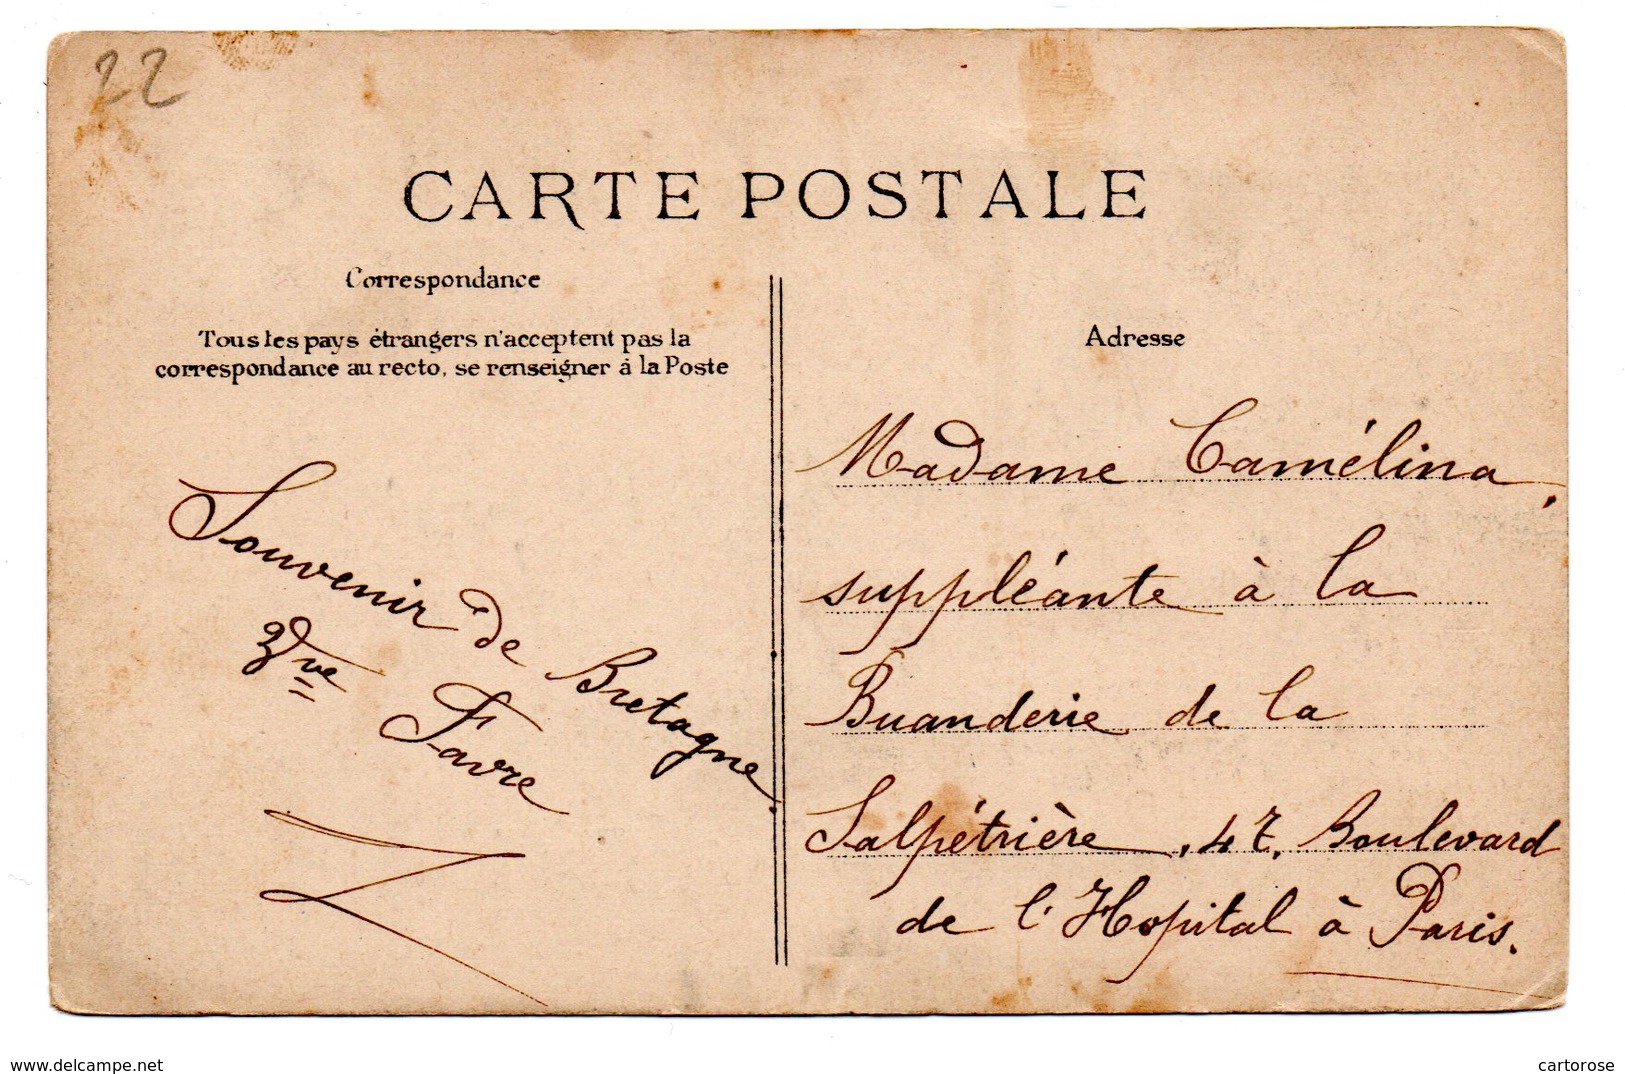 22
CARTE POSTALE
Correspondance
Tous les pays étrangers n'acceptent pas la
correspondance au recto, se renseigner à la Poste
Souvenir de Bretagne
Vve Favre
Adresse
Madame Camélina,
suppléante à la
Buanderie de la
Salpétrière, 47, Boulevard
de l'Hopital à Paris.
www.delcampe.net
cartorose